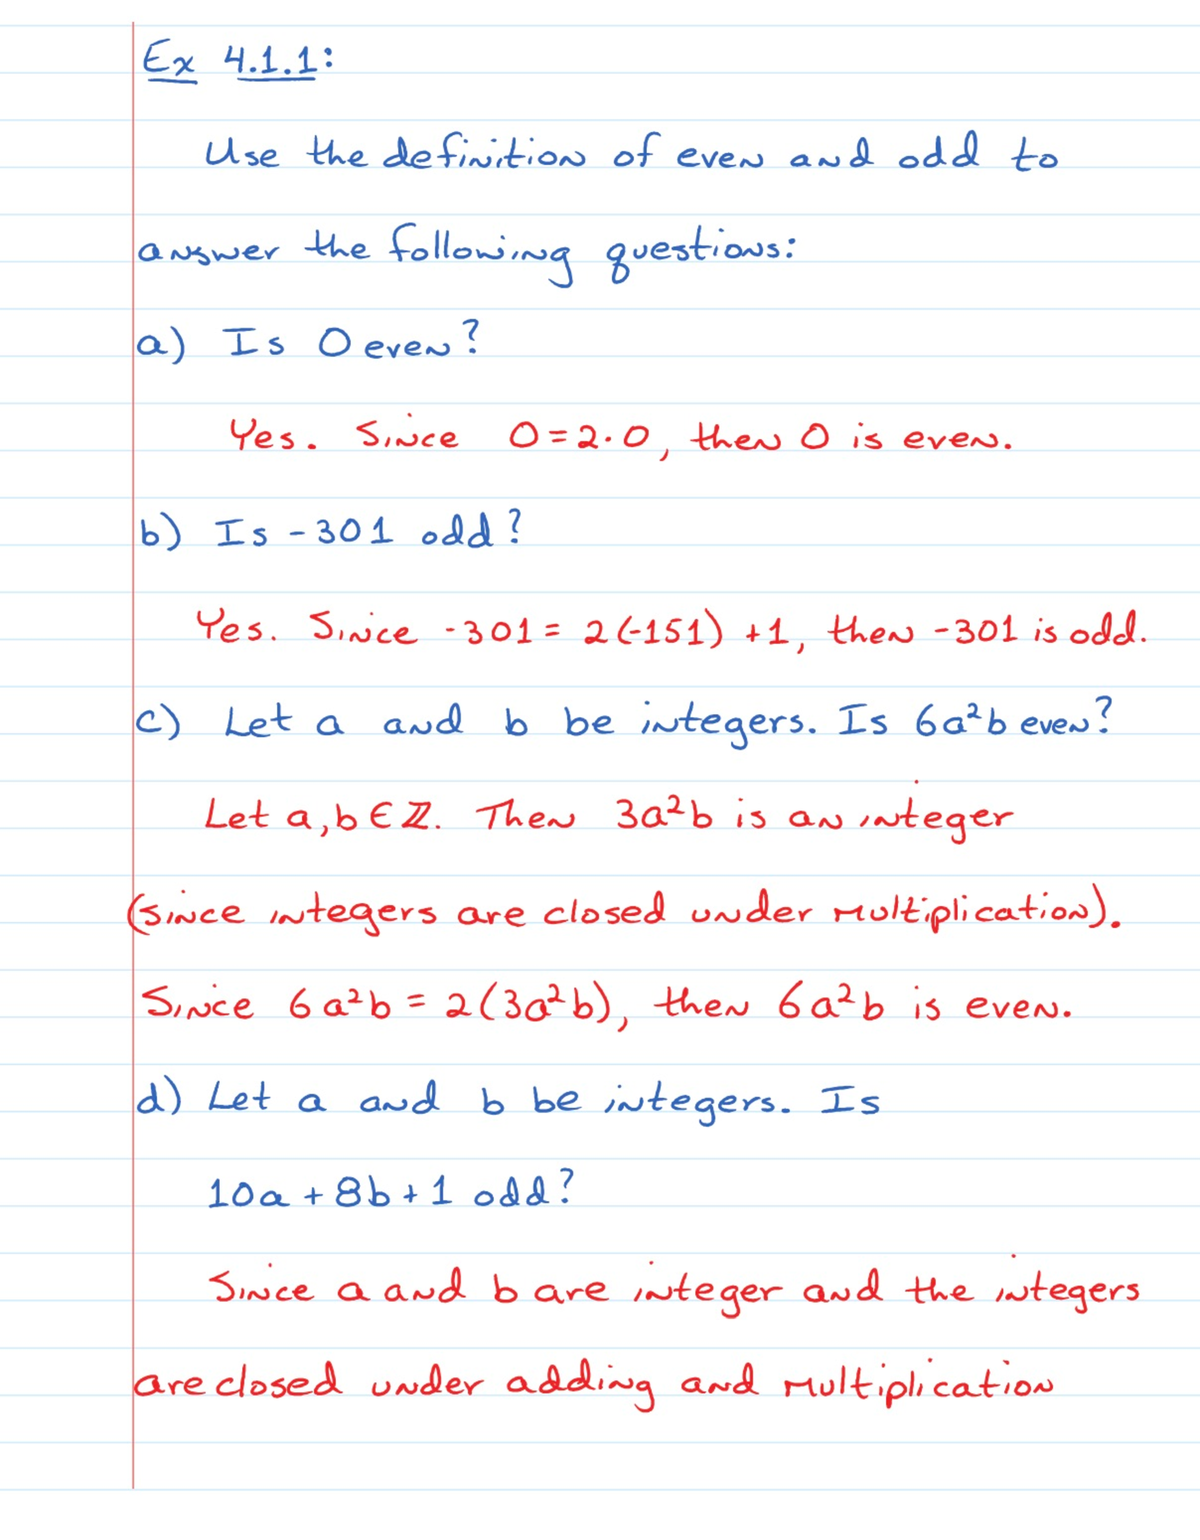 Ex 4.1.1:
Use the definition of even and odd to
answer the following questions:
a) Is 0 even?
Yes. Since 0=2·0, then 0 is even.
b) Is -301 odd?
Yes. Since -301 = 2(-151) +1, then -301 is odd.
c) Let a and b be integers. Is 6a²b even?
Let a,b ∈ ℤ. Then 3a²b is an integer
(since integers are closed under multiplication).
Since 6a²b = 2(3a²b), then 6a²b is even.
d) Let a and b be integers. Is
10a + 8b + 1 odd?
Since a and b are integer and the integers
are closed under adding and multiplication